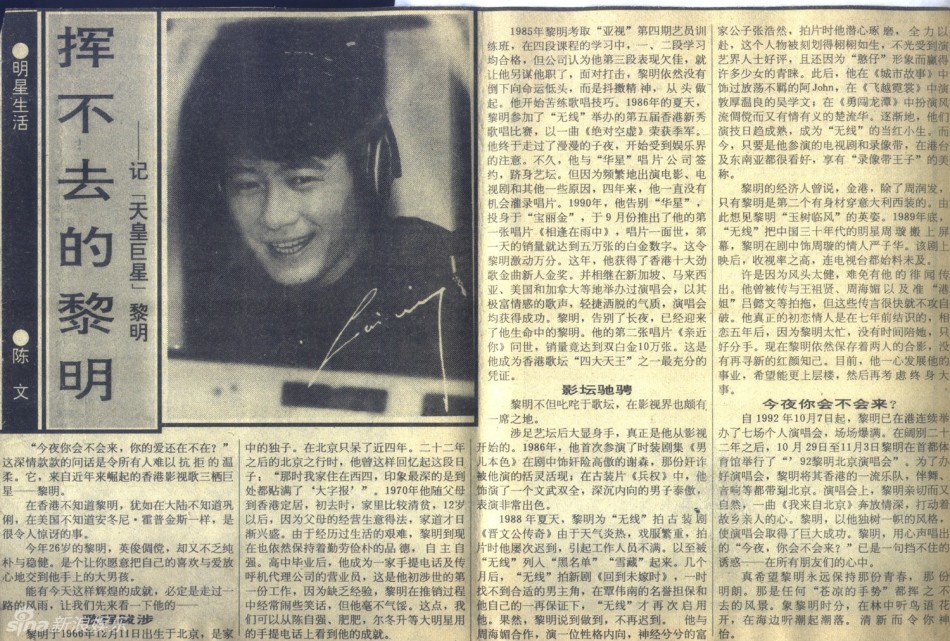 ●明星生活
●陈文
挥不去的黎明
——记「天皇巨星」黎明
“今夜你会不会来，你的爱还在不在？”
这深情款款的问话是令所有人难以抗拒的温
柔。它，来自近年来崛起的香港影视歌三栖巨
星——黎明。
在香港不知道黎明，犹如在大陆不知道巩
俐，在美国不知道安冬尼·霍普金斯一样，是
很令人惊讶的事。
今年26岁的黎明，英俊倜傥，却又不乏纯
朴与稳健。是个让你愿意把自己的喜欢与爱放
心地交到他手上的大男孩。
能有今天这样辉煌的成就，必定是走过一
路的风雨，让我们先来看一下他的——
黎明于1966年12月11日出生于北京，是家
中的独子。在北京只呆了近四年。二十二年
之后的北京之行时，他曾这样回忆起这段日
子：“那时我家住在西四，印象最深的是到
处都贴满了‘大字报’”。1970年他随父母
到香港定居，初去时，家里比较清贫，12岁
以后，因为父母的经营生意得法，家道才日
渐兴盛。由于经历过生活的艰难，黎明到现
在也依然保持着勤劳俭朴的品德，自主自
强。高中毕业后，他成为一家手提电话及传
呼机代理公司的营业员，这是他初涉世的第
一份工作，因为缺乏经验，黎明在推销过程
中经常闹些笑话，但他毫不气馁。这点，我
们可以从陈自强、肥肥、尔冬升等大明星用
的手提电话上看到他的成就。
1985年黎明考取“亚视”第四期艺员训
练班，在四段课程的学习中，一、二段学习
均合格，但公司认为他第三段表现欠佳，就
让他另谋他职了，面对打击，黎明依然没有
倒下向命运低头，而是抖擞精神，从头做
起。他开始苦练歌唱技巧。1986年的夏天，
黎明参加了“无线”举办的第五届香港新秀
歌唱比赛，以一曲《绝对空虚》荣获季军。
他终于走过了漫漫的子夜，开始受到娱乐界
的注意。不久，他与“华星”唱片公司签
约，跻身艺坛。但因为频繁地出演电影、电
视剧和其他一些原因，四年来，他一直没有
机会灌录唱片。1990年，他告别“华星”，
投身于“宝丽金”，于9月份推出了他的第
一张唱片《相逢在雨中》，唱片一面世，第
一天的销量就达到五万张的白金数字。这令
黎明激动万分。这年，他获得了香港十大劲
歌金曲新人金奖。并相继在新加坡、马来西
亚、美国和加拿大等地举办过演唱会，以其
极富情感的歌声，轻捷洒脱的气质，演唱会
均获得成功。黎明，告别了长夜，已经迎来
了他生命中的黎明。他的第二张唱片《亲近
你》问世，销量竟达到双白金10万张。这是
他成为香港歌坛“四大天王”之一最充分的
凭证。
影坛驰骋
黎明不但叱咤于歌坛，在影视界也颇有
一席之地。
涉足艺坛后大显身手，真正是他从影视
开始的。1986年，他首次参演了时装剧集《男
儿本色》在剧中饰奸险高傲的谢森，那份奸诈
被他演的恬灵活现；在古装片《兵权》中，他
饰演了一个文武双全，深沉内向的男子泰傲，
表演非常出色。
1988年夏天，黎明为“无线”拍古装剧
《晋文公传奇》由于天气炎热，戏服繁重，拍
片时他屡次迟到，引起工作人员不满。以至被
“无线”列人“黑名单”“雪藏”起来。几个
月后，“无线”拍新剧《回到未嫁时》，一时
找不到合适的男主角，在覃伟南的名誉担保和
他自己的一再保证下，“无线”才再次启用
他。果然，黎明说到做到，不再迟到。 他与
周海媚合作，演一位性格内向，神经兮兮的富
家公子张浩然，拍片时他潜心琢磨，全力以
赴，这个人物被刻划得栩栩如生，不光受到演
艺界人士好评，且还因为“憨仔”形象而赢得
许多少女的青睐。此后，他在《城市故事》中
饰过放荡不羁的阿John，在《飞越霓裳》中演
敦厚温良的吴学文；在《勇闯龙潭》中扮演风
流倜傥而又有情有义的楚流华。逐渐地，他们
演技日趋成熟，成为“无线”的当红小生。而
今，只要是他参演的电视剧和录像带，在港台
及东南亚都很看好，享有“录像带王子”的美
称。
黎明的经济人曾说，金港，除了周润发，
只有黎明是第二个有身材穿意大利西装的。由
此想见黎明“玉树临风”的英姿。1989年底，
“无线”把中国三十年代的明星周璇搬上屏
幕，黎明在剧中饰周璇的情人严子华。该剧上
映后，收视率之高，连电视台都始料未及。
许是因为风头太健，难免有他的徘闻传
出。他曾被传与王祖贤、周海媚以及准“港
姐”吕懿文等拍拖，但这些传言很快就不攻自
破。他真正的初恋情人是在七年前结识的，相
恋五年后，因为黎明太忙，没有时间陪她，只
好分手。现在黎明依然保存着两人的合影，没
有再寻新的红颜知己。目前，他一心发展他的
事业，希望能更上层楼，然后再考虑终身大
事。
今夜你会不会来？
自1992年10月7日起，黎明已在港连续举
办了七场个人演唱会，场场爆满。在阔别二十
二年之后，10月29日至11月3日黎明在首都体
育馆举行了“’92黎明北京演唱会”。为了办
好演唱会，黎明将其香港的一流乐队，伴舞、
音响等都带到北京。演唱会上，黎明亲切而又
自然，一曲《我来自北京》奔放情深，打动着
故乡亲人的心。黎明，以他独树一帜的风格，
使演唱会取得了巨大成功。黎明，用心声唱出
的“今夜，你会不会来？”已是一句挡不住的
诱惑——在所有朋友们的心中。
真希望黎明永远保持那份青春，那份
明朗。那是任何“苍凉的手势”都挥之不
去的风景。象黎明时分，在林中听鸟语花
开，在海边听潮起潮落。清新而令你难
怡。
sina